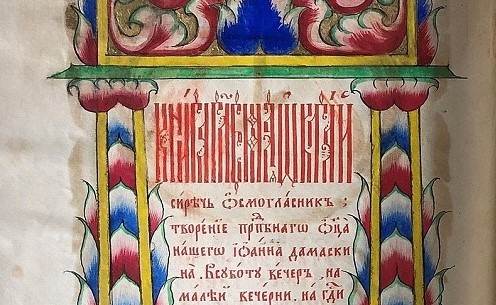 сирѣчь Ѻсмогласникъ :
творенїе прпⷣбнагѡ ѻц҃а
нашегѡ Іѡанна дамаски
на. Всуботу вечеръ, на
малѣй вечерни. на гдⷭ҇и